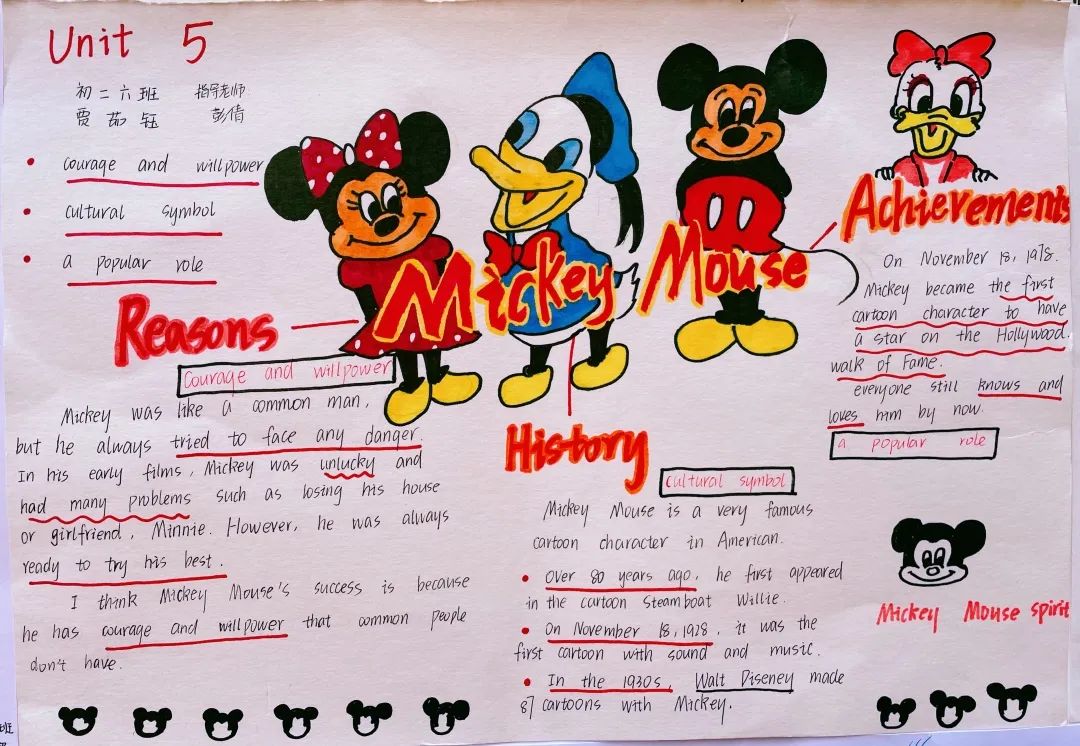 Unit 5
初二六班 指导老师
贾茹钰 彭倩
courage and willpower
cultural symbol
a popular role
Mickey Mouse
Reasons
Courage and willpower
Mickey was like a common man,
but he always tried to face any danger.
In his early films, Mickey was unlucky and
had many problems such as losing his house
or girlfriend, Minnie. However, he was always
ready to try his best.
I think Mickey Mouse's success is because
he has courage and willpower that common people
don't have.
History
cultural symbol
Mickey Mouse is a very famous
cartoon character in American.
Over 80 years ago, he first appeared
in the cartoon Steamboat Willie.
On November 18, 1928, it was the
first cartoon with sound and music.
In the 1930s, Walt Diseney made
87 cartoons with Mickey.
Achievements
On November 18, 1978.
Mickey became the first
cartoon character to have
a star on the Hollywood.
walk of Fame.
everyone still knows and
loves him by now.
a popular role
Mickey Mouse spirit